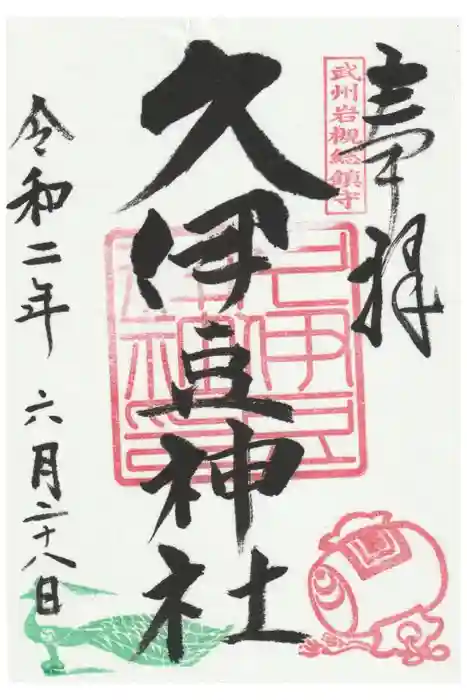 奉拝
武州岩槻総鎮守
久伊豆神社
令和二年 六月二十八日